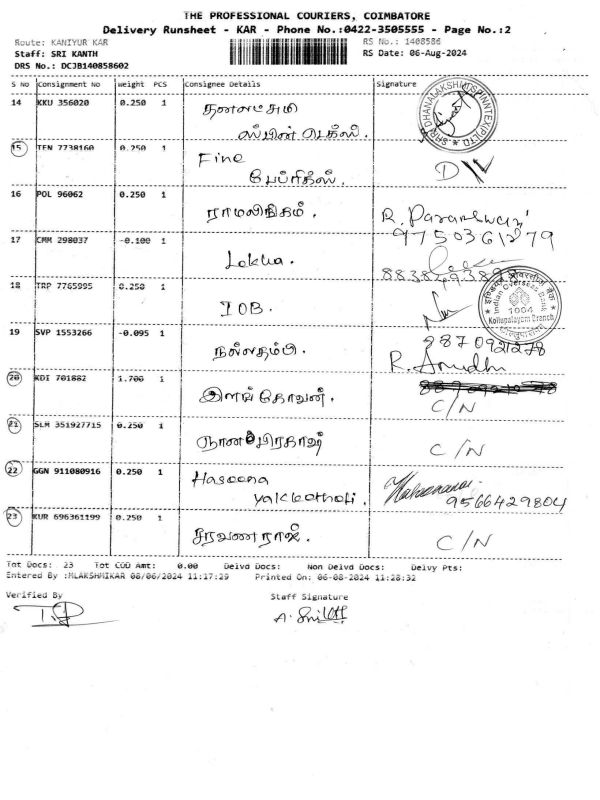 THE PROFESSIONAL COURIERS, COIMBATORE
Delivery Runsheet - KAR - Phone No.:0422-3505555 - Page No.:2
Route: KANIYUR KAR RS No.: 1408586
Staff: SRI KANTH RS Date: 06-Aug-2024
DRS No.: DCJB140858602
S No Consignment No Weight PCS Consignee Details Signature
14 KKU 356020 0.250 1 தனலட்சுமி
ஸ்பின் டெக்ஸ்.
15 TEN 7738160 0.250 1 Fine
பேப்ரிக்ஸ்.
16 POL 96062 0.250 1 ராமலிங்கம். R. Parameswari
9750361279
17 CMM 298037 -0.100 1 Lekha.
18 TRP 7765995 0.250 1 IOB.
Indian Overseas Bank
1004
19 SVP 1553266 -0.095 1 நல்லதம்பி.
R. Anudhi
20 KDI 701882 1.700 1 இளங்கோவன். C/N
21 SLM 351927715 0.250 1 ஞானபிரகாஷ் C/N
22 GGN 911080916 0.250 1 Haseena
9566429804
23 KUR 696361199 0.250 1 சரவணராஜ். C/N
Tot Docs: 23 Tot COD Amt: 0.00 Delvd Docs: Non Delvd Docs: Delvy Pts:
Entered By :MLAKSHMIKAR 08/06/2024 11:17:29 Printed On: 06-08-2024 11:28:32
Verified By Staff Signature